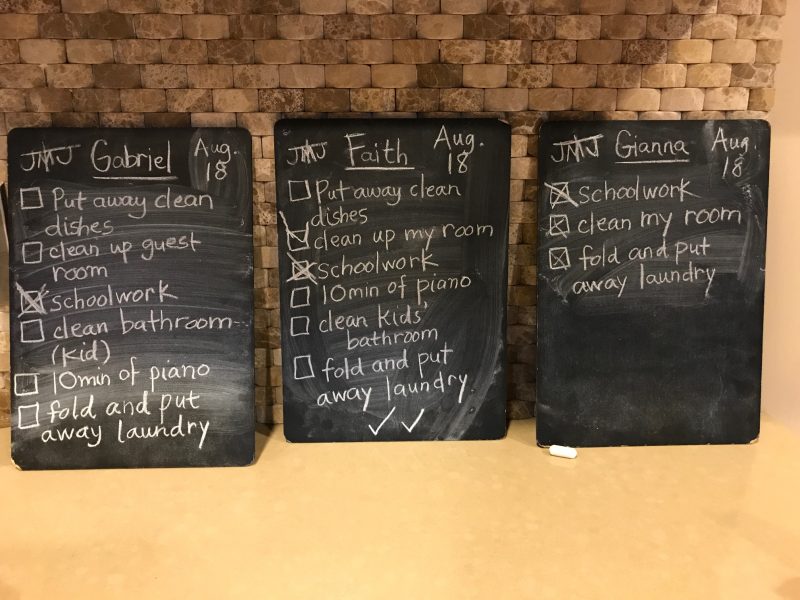 JMJ Gabriel Aug.
18
Put away clean
dishes
clean up guest
room
schoolwork
clean bathroom
(kid)
10min of piano
fold and put
away laundry
JMJ Faith Aug.
18
Put away clean
dishes
clean up my room
schoolwork
10min of piano
clean kids'
bathroom
fold and put
away laundry
JMJ Gianna Aug.
18
schoolwork
clean my room
fold and put
away laundry